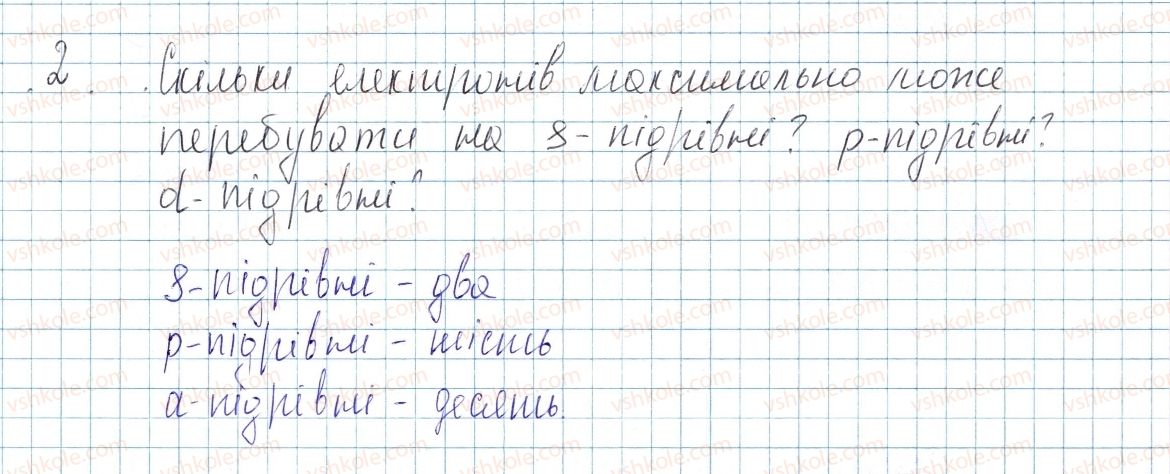 2. Скільки електронів максимально може
перебувати на s-підрівні? p-підрівні?
d-підрівні?
s-підрівні - два
p-підрівні - шість
d-підрівні - десять.